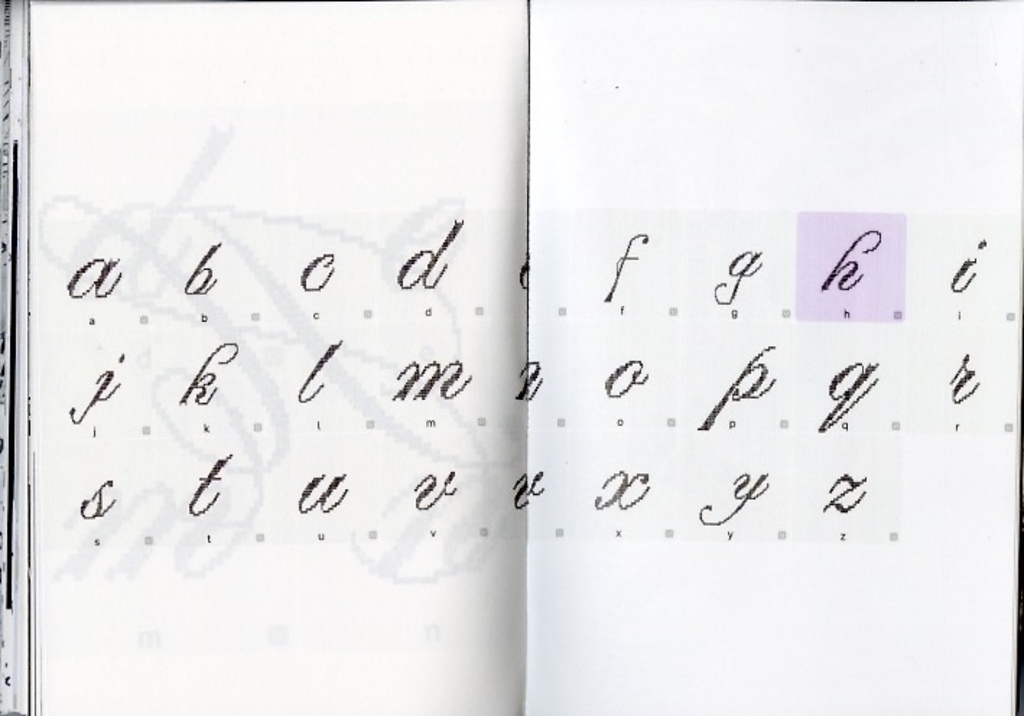 a b c d f g h i
a b c d f g h i
j k l m n o p q r
j k l m o p q r
s t u v x y z
s t u v x y z
m n